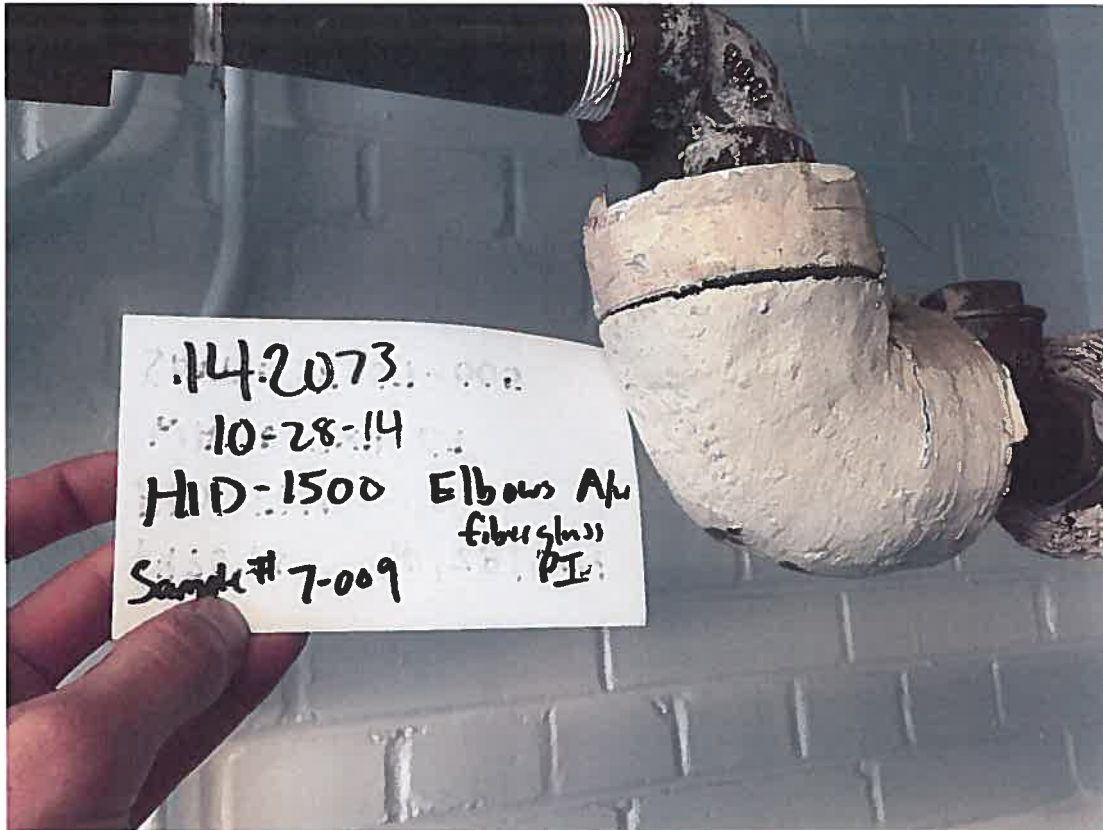 142073
10-28-14
HID-1500 Elbows A/w
fiberglass
PI
Sample # 7-009